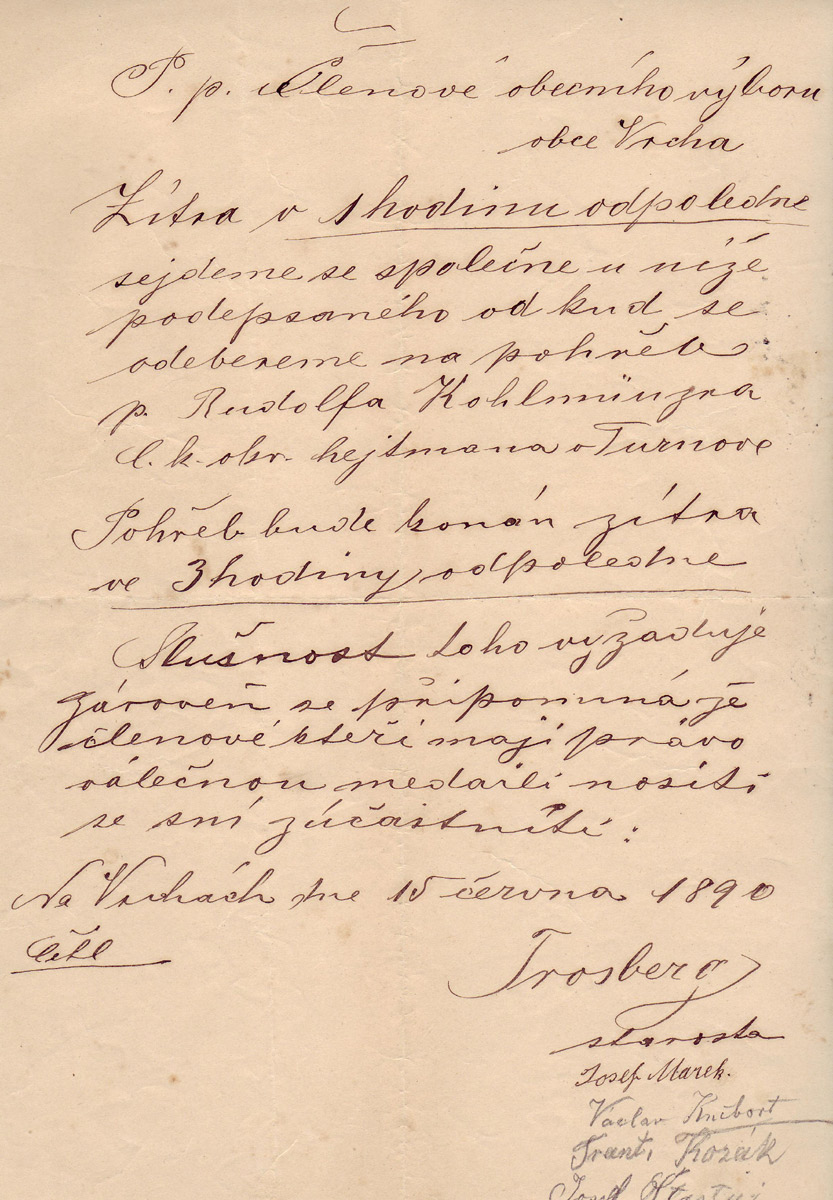 P. p. Členové obecního výboru
obce Vrcha
Zítra v 1 hodinu odpoledne
sejdeme se společne u níže
podepsaného od kud se
odebereme na pohřeb
p. Rudolfa Kohlmünzra
C. k. okr. hejtmana v Turnove
Pohřeb bude konán zítra
ve 3 hodiny odpoledne
Slušnost toho vyžaduje
zároveň se připomuná že
členové kteří mají právo
válečnou medaili nositi
se sní zúčastniti:
Na Vrchách dne 15 června 1890
Trosberg
starosta
Josef Marek.
Vaclav
Frant. Kozák
Josef